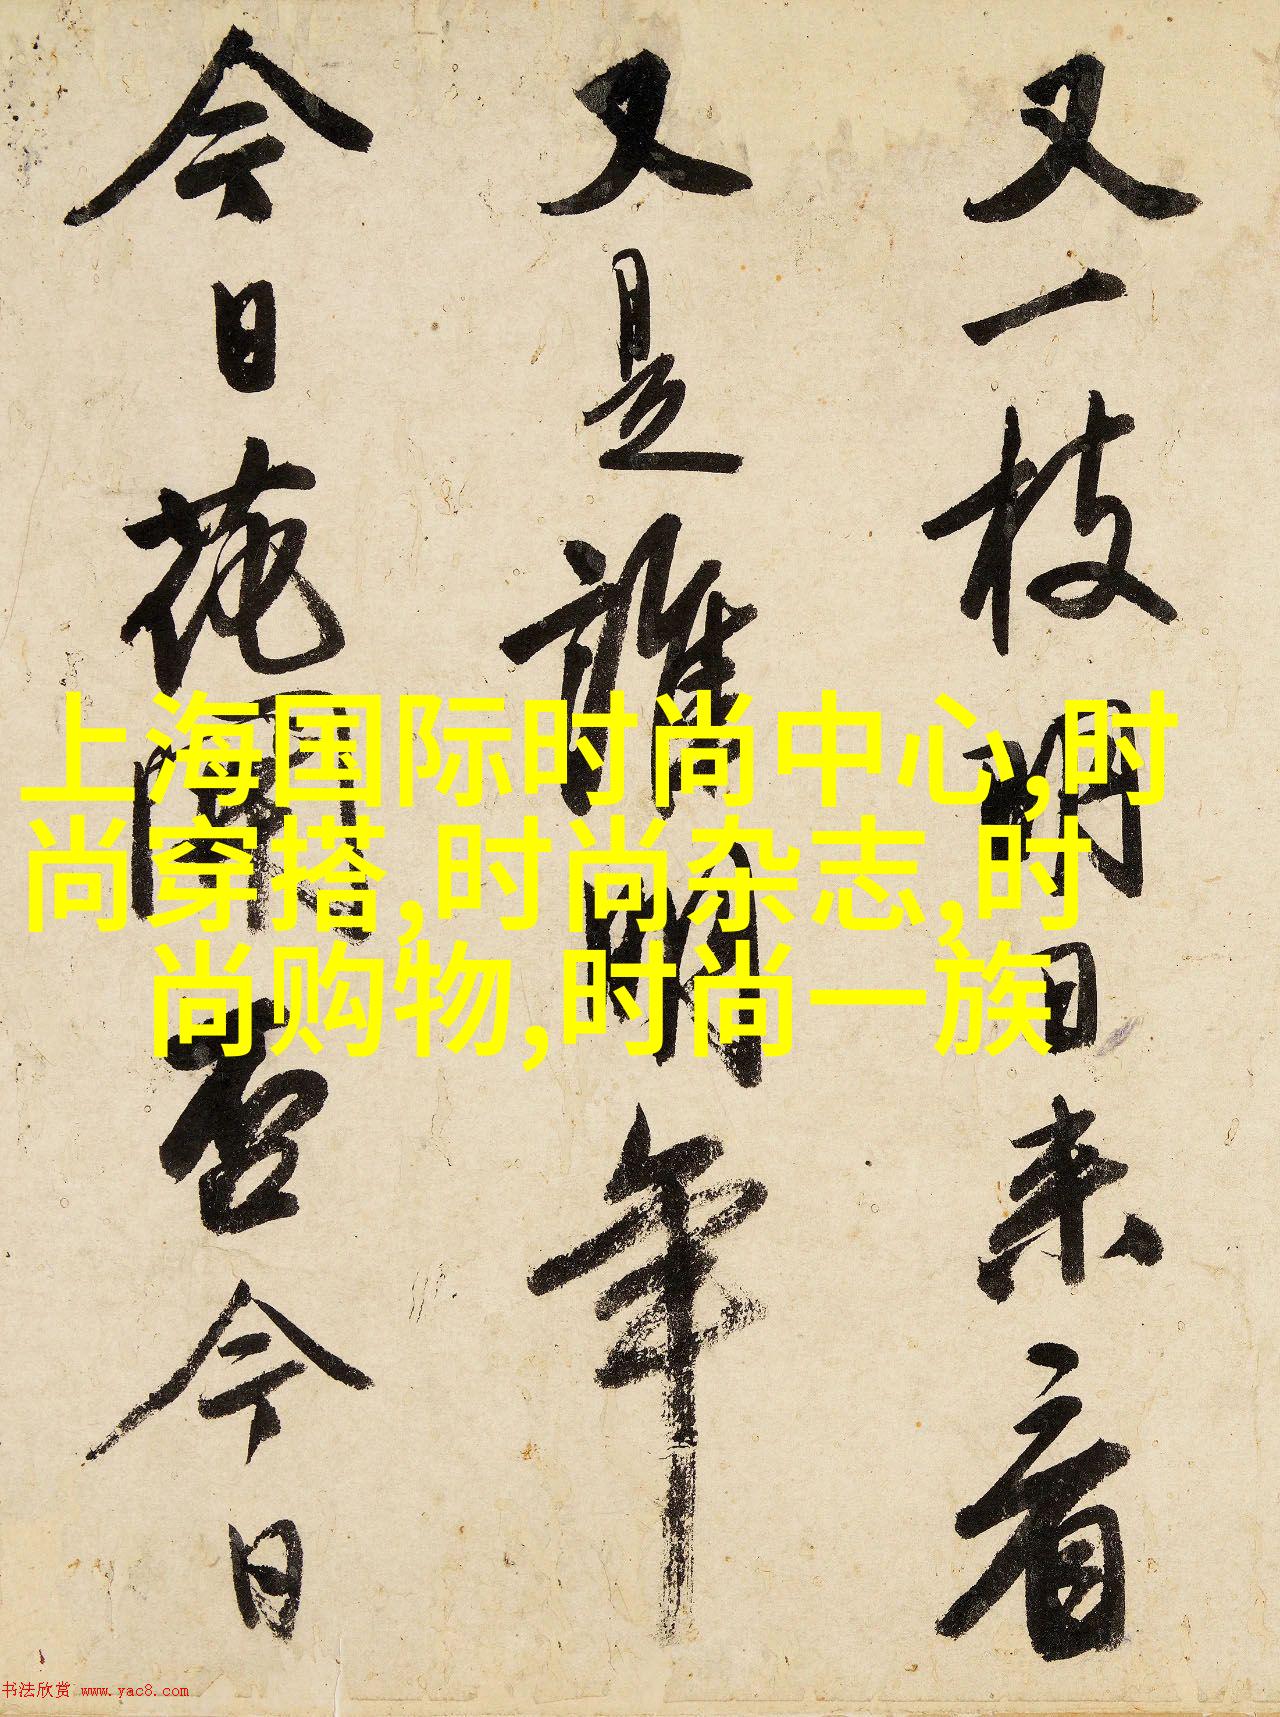 又一枝明日来看
又是誰明年
今日花開否今日
上海国际时尚中心,时
尚穿搭,时尚杂志,时
尚购物,时尚一族
书法欣赏 www.yac8.com